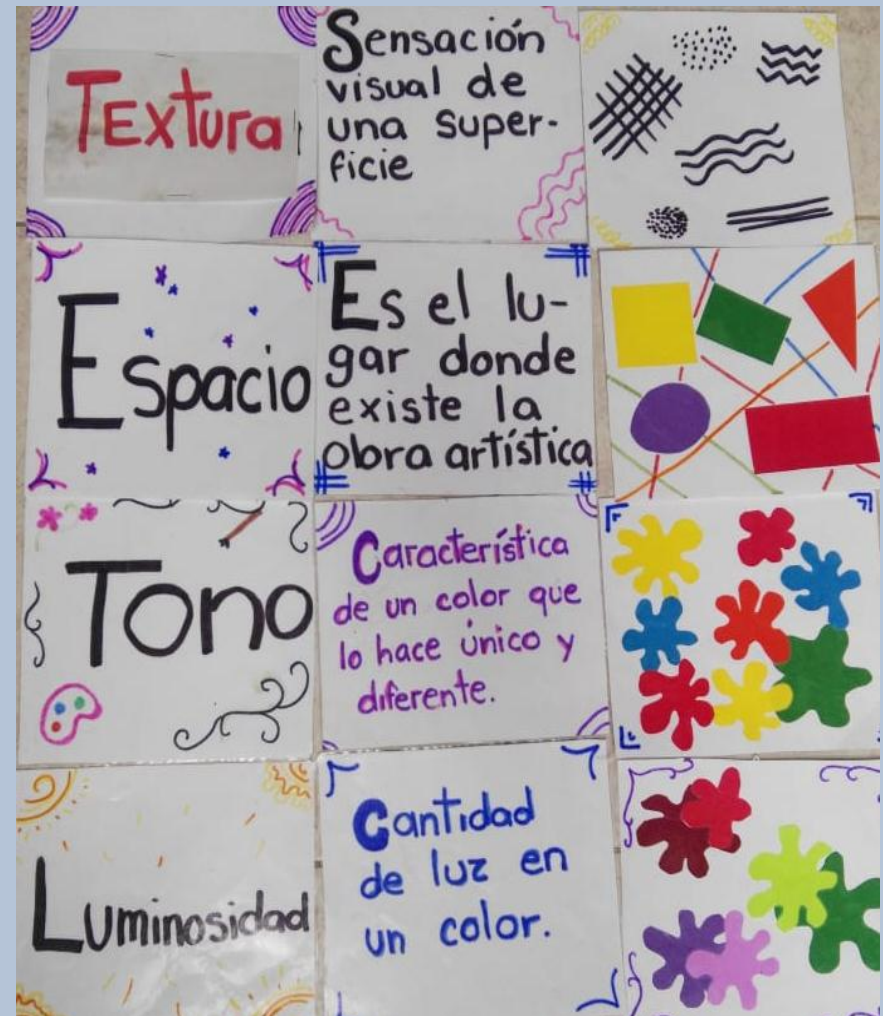 Textura
Sensación
visual de
una super-
ficie
Espacio
Es el lu-
gar donde
existe la
obra artística
Tono
Característica
de un color que
lo hace único y
diferente.
Luminosidad
Cantidad
de luz en
un color.